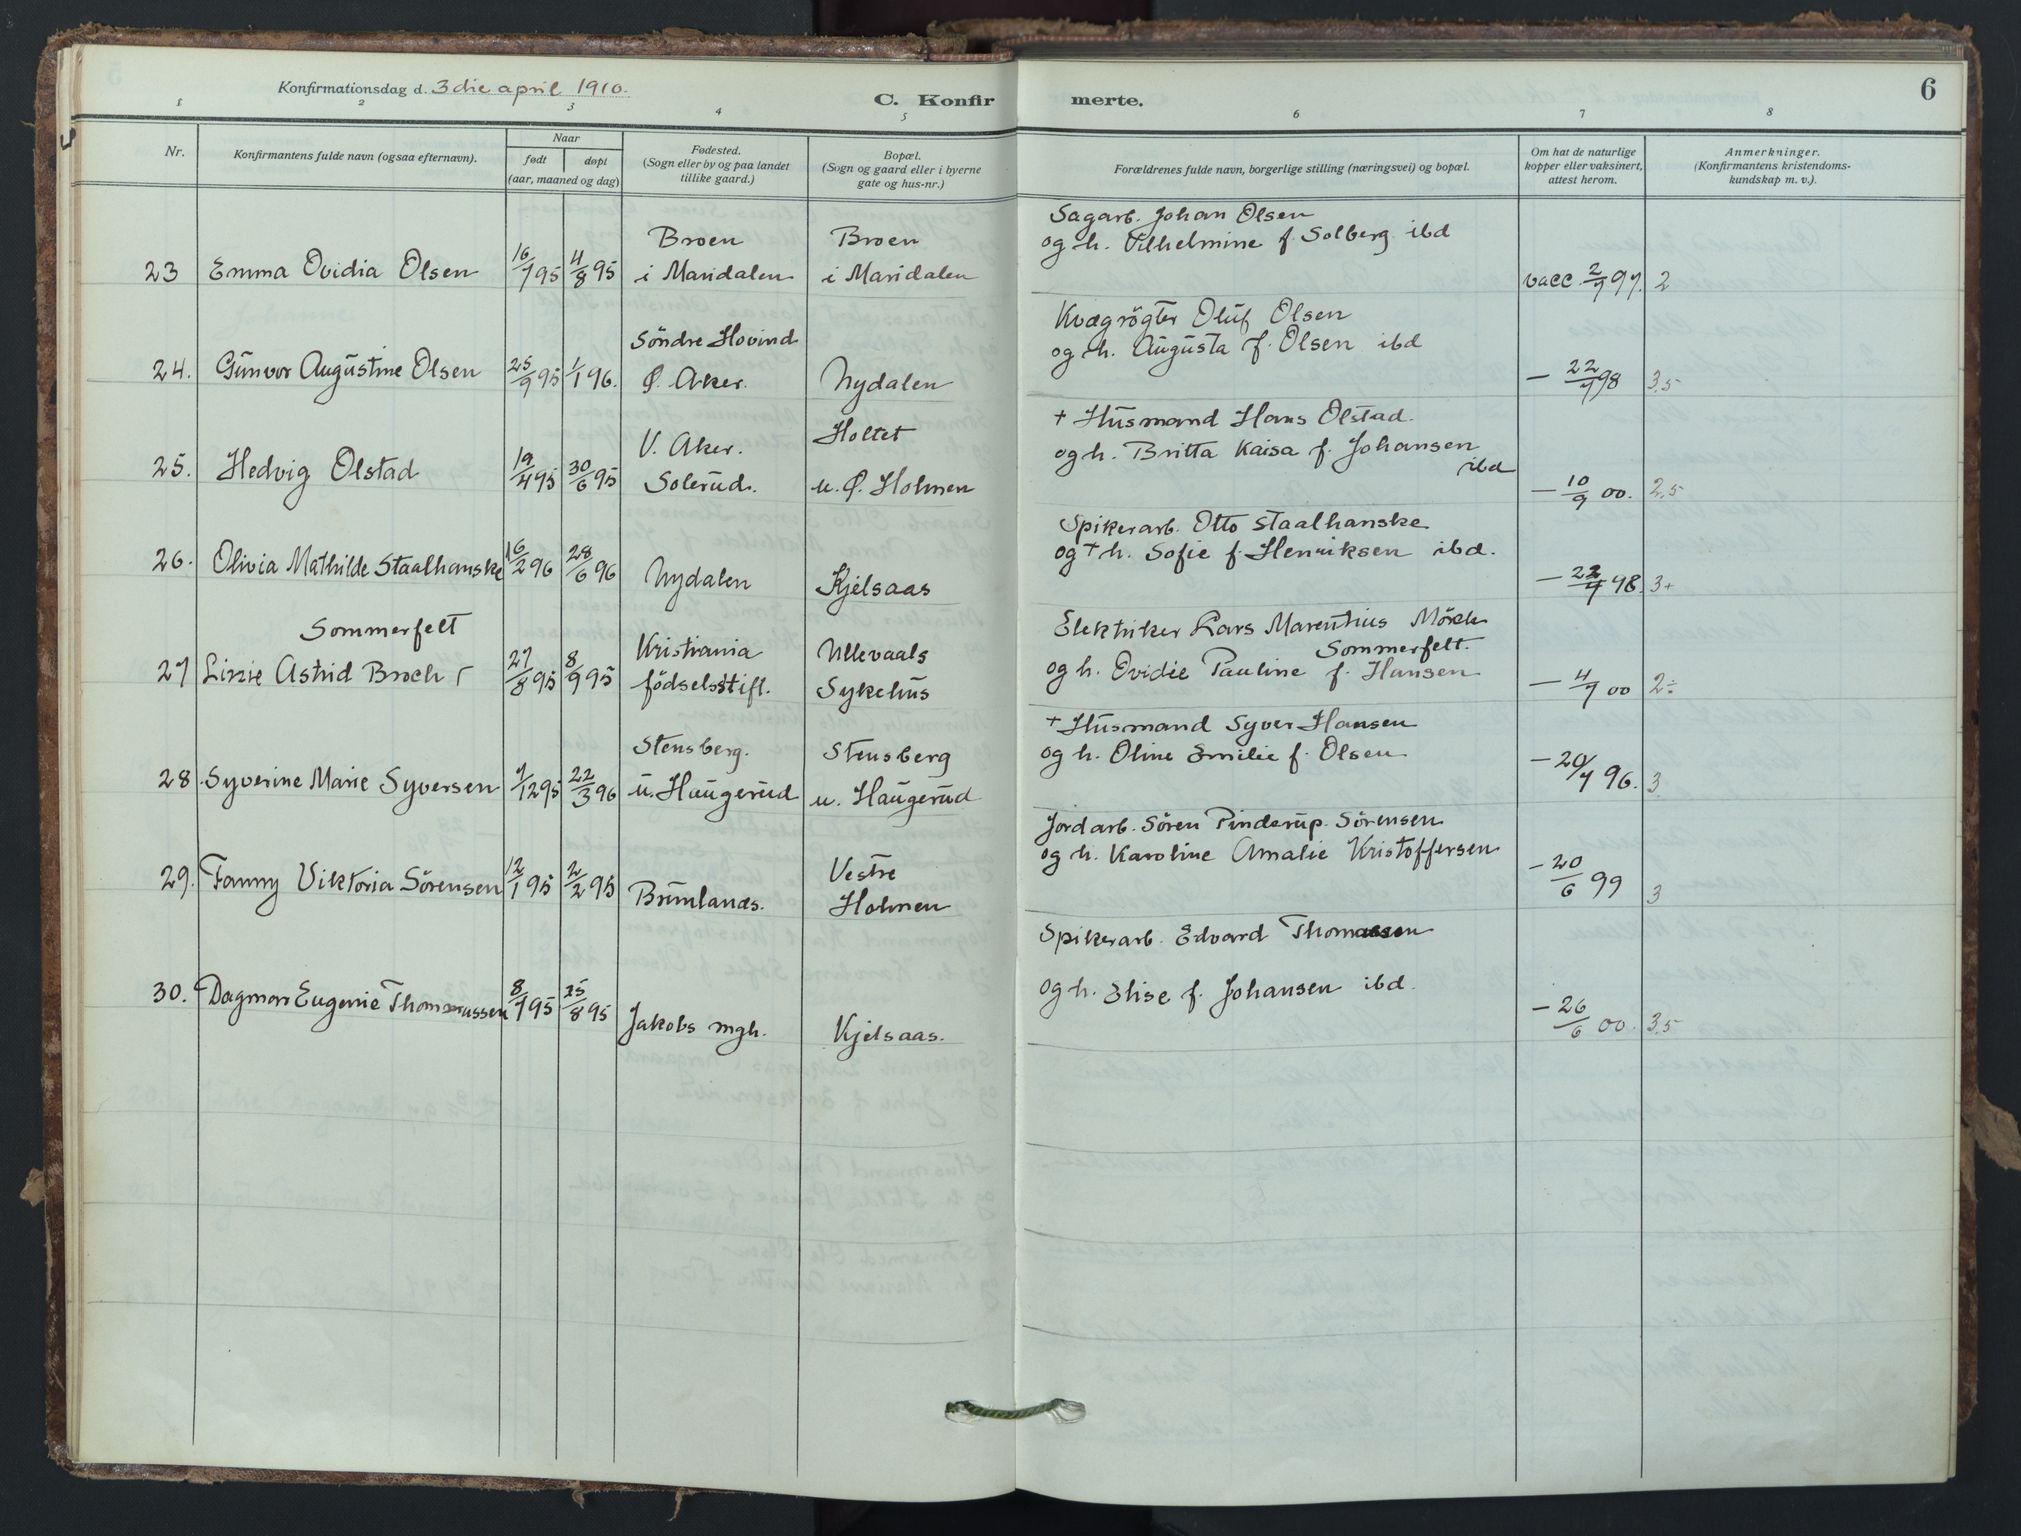 Konfirmationsdag d. 3die april 1910.
C. Konfirmerte.
6
1 2 3 4 5 6 7 8
Nr.
Konfirmantens fulde navn (ogsaa efternavn).
Naar
født
døpt
(aar, maaned og dag)
Fødested.
(Sogn eller by og paa landet
tillike gaard.)
Bopæl.
(Sogn og gaard eller i byerne
gate og hus-nr.)
Forældrenes fulde navn, borgerlige stilling (næringsvei) og bopæl.
Om hat de naturlige
kopper eller vaksinert,
attest herom.
Anmerkninger.
(Konfirmantens kristendoms-
kundskap m. v.).
Sagarb. Johan Olsen
Broen Broen og h. Vilhelmine f. Solberg ibd
23 Emma Ovidia Olsen 16/7 95 4/8 95 i Maridalen i Maridalen vacc. 2/7 97. 2
Kvægrögter Oluf Olsen
Söndre Hovind og h. Augusta f. Olsen ibd
24. Gunvor Augustine Olsen 25/9 95 1/1 96. Ø. Aker. Nydalen — 22/7 98 3,5
+ Husmand Hans Olstad.
V. Aker. Holtet og h. Britta Kaisa f. Johansen
ibd
25. Hedvig Olstad 19/4 95 30/6 95 Solerud. u. Ø. Holmen — 10/9 00. 2,5
Spikerarb. Otto Staalhanske
og + h. Sofie f. Henriksen ibd.
26. Olivia Mathilde Staalhanske 16/2 96 28/6 96 Nydalen Kjelsaas — 22/7 98. 3+
Sommerfelt Kristiania Ullevaals Elektriker Lars Marentius Mörch
Sommerfelt.
27 Lizzie Astrid Broch 27/8 95 8/9 95 födselsstift. Sykehus og h. Ovidie Pauline f. Hansen — 4/7 00 2÷
+ Husmand Syver Hansen
Stensberg. Stensberg og h. Oline Emilie f. Olsen
28 Syverine Marie Syversen 7/12 95 22/3 96 u. Haugerud u. Haugerud — 20/7 96. 3.
Jordarb. Sören Pinderup Sörensen
Vestre og h. Karoline Amalie Kristoffersen
29. Fanny Viktoria Sörensen 12/1 95 2/2 95 Brunlanes. Holmen — 20/6 99 3
Spikerarb. Edvard Thomassen
30. Dagmar Eugenie Thommassen 8/7 95 25/8 95 Jakobs mgh. Kjelsaas. og h. Elise f. Johansen ibd. — 26/6 00. 3,5